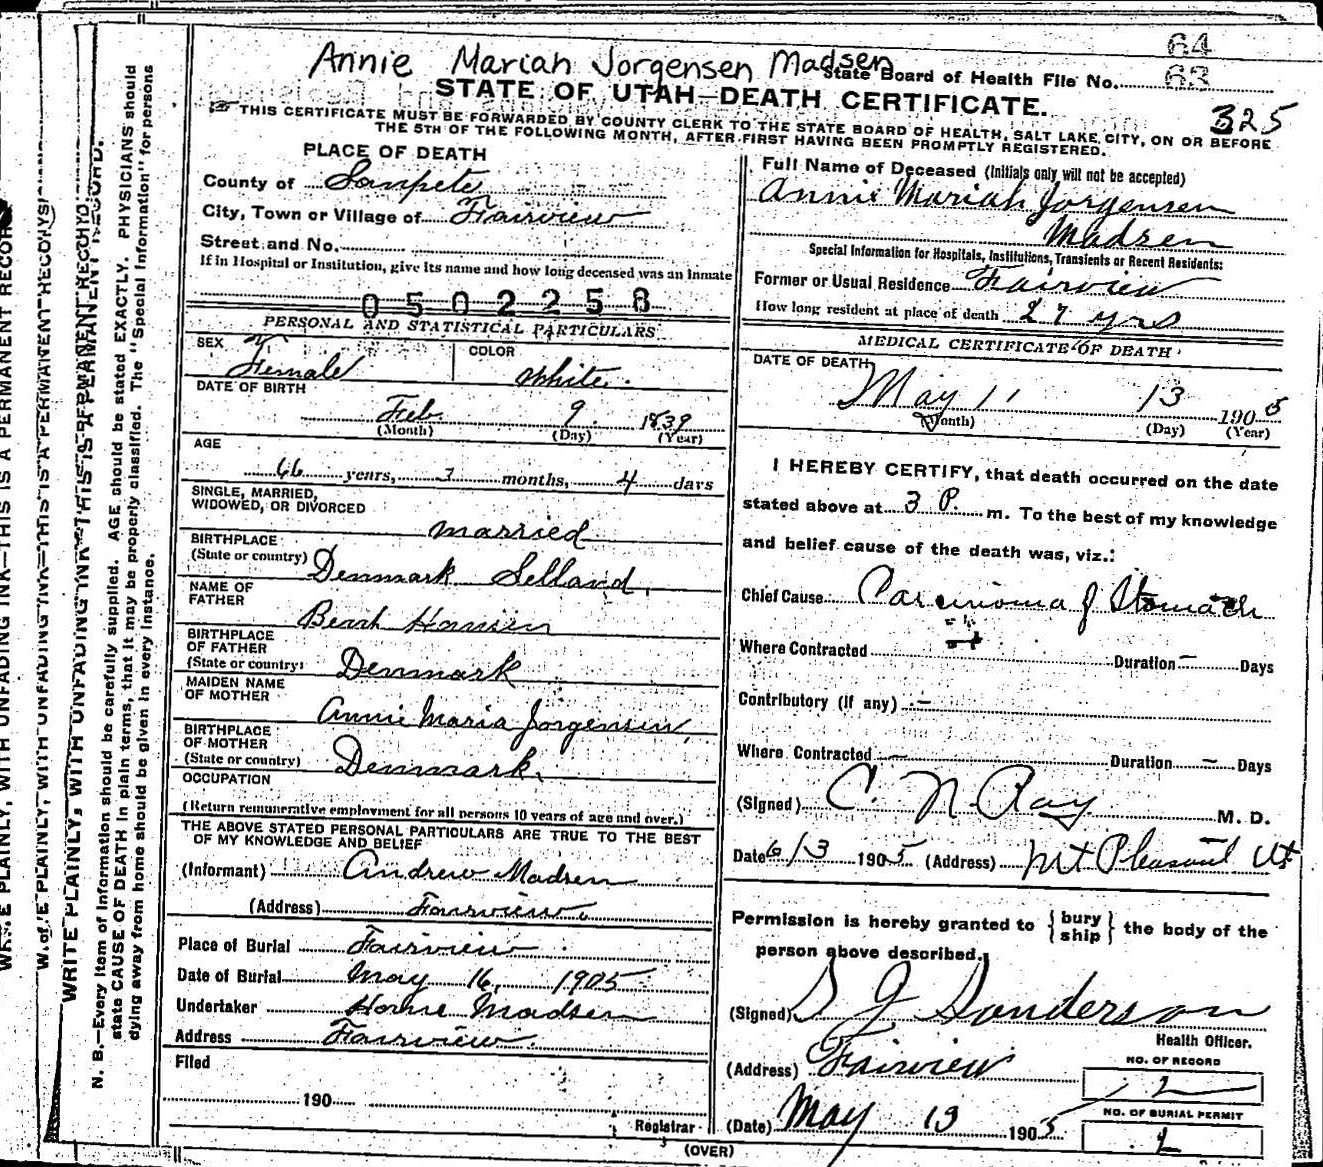 Annie Mariah Jorgensen Madsen
64
State Board of Health File No. 63
STATE OF UTAH—DEATH CERTIFICATE.
325
THIS CERTIFICATE MUST BE FORWARDED BY COUNTY CLERK TO THE STATE BOARD OF HEALTH, SALT LAKE CITY, ON OR BEFORE
THE 5TH OF THE FOLLOWING MONTH, AFTER FIRST HAVING BEEN PROMPTLY REGISTERED.
PLACE OF DEATH
County of Sanpete
City, Town or Village of Fairview
Street and No.
If in Hospital or Institution, give its name and how long deceased was an inmate
0502258
PERSONAL AND STATISTICAL PARTICULARS
SEX Female
COLOR White.
DATE OF BIRTH
Feb. 9 1839
(Month) (Day) (Year)
AGE
66 years, 3 months, 4 days
SINGLE, MARRIED,
WIDOWED, OR DIVORCED
married
BIRTHPLACE
(State or country) Denmark
NAME OF
FATHER
BIRTHPLACE
OF FATHER
(State or country) Denmark
MAIDEN NAME
OF MOTHER
Annie Maria Jorgensen
BIRTHPLACE
OF MOTHER
(State or country) Denmark.
OCCUPATION
(Return remunerative employment for all persons 10 years of age and over.)
THE ABOVE STATED PERSONAL PARTICULARS ARE TRUE TO THE BEST
OF MY KNOWLEDGE AND BELIEF
(Informant) Andrew Madsen
(Address) Fairview.
Place of Burial Fairview
Date of Burial May 16, 1905
Undertaker Madsen
Address Fairview.
Filed
190
Registrar
Full Name of Deceased (Initials only will not be accepted)
Annie Mariah Jorgensen
Madsen
Special Information for Hospitals, Institutions, Transients or Recent Residents:
Former or Usual Residence Fairview
How long resident at place of death 27 yrs
MEDICAL CERTIFICATE OF DEATH
DATE OF DEATH
May 13 1905
(Month) (Day) (Year)
I HEREBY CERTIFY, that death occurred on the date
stated above at 3 P. m. To the best of my knowledge
and belief cause of the death was, viz.:
Chief Cause Carcinoma of Stomach
Where Contracted Duration — Days
Contributory (if any) —
Where Contracted — Duration — Days
(Signed) C. N. Ray M. D.
Date 6/3 1905 (Address) Mt Pleasant Ut
Permission is hereby granted to { bury
ship } the body of the
person above described.
(Signed) S J Sanderson
Health Officer.
(Address) Fairview
NO. OF RECORD
2
NO. OF BURIAL PERMIT
(Date) May 13 1905
(OVER)
N. B.—Every item of information should be carefully supplied. AGE should be stated EXACTLY. PHYSICIANS should
state CAUSE OF DEATH in plain terms, that it may be properly classified. The "Special Information" for persons
dying away from home should be given in every instance.
WRITE PLAINLY, WITH UNFADING INK—THIS IS A PERMANENT RECORD.